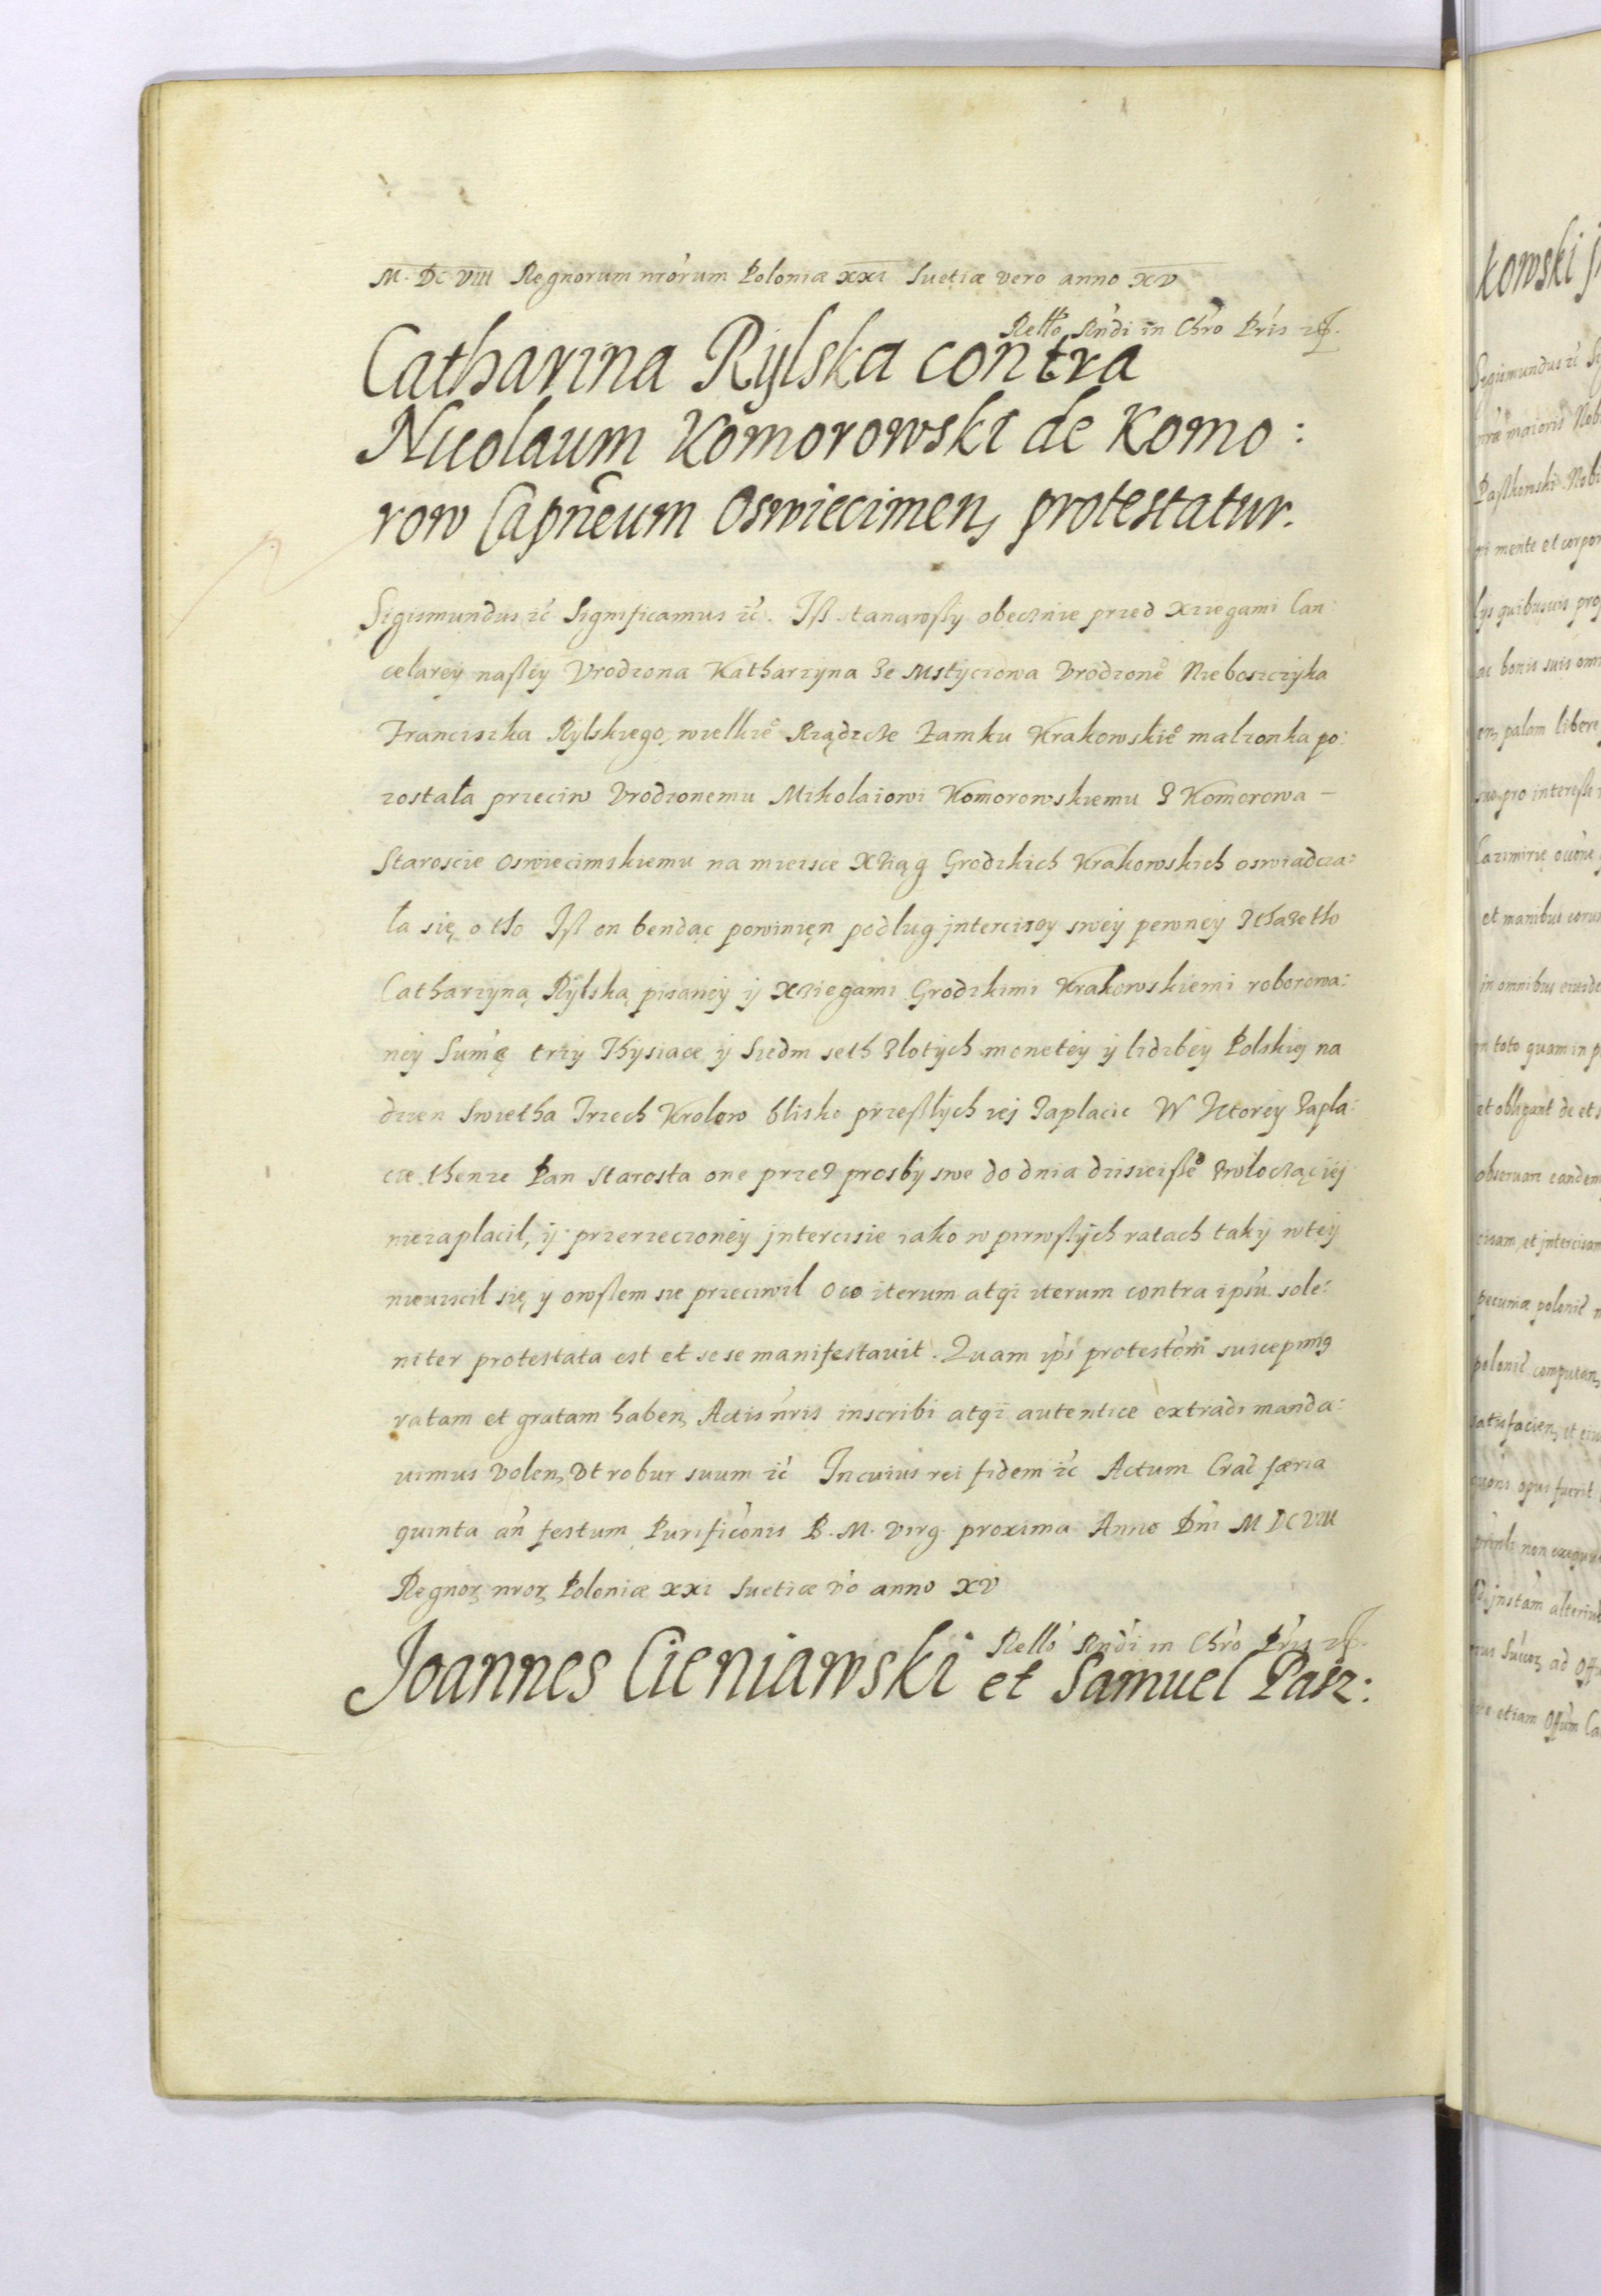 M. DC VIII Regnorum nrorum Poloniæ XXI Suetiæ vero anno XV
Rello Rndi in Chro Pris
Catharina Rylska contra
Nicolaum Komorowski de Komo:
row Capneum Oswiecimen, protestatur.
Sigismundus ic Significamus ic. Iß stanąwßy obecznie przed Xięgami Can:
celarey naßey Vrodzona Katharzyna Ze Mstyczowa Vrodzone Nieboszczyka
Franciszka Rylskiego, wielkie Rządzcze Zamku Krakowskie malzonka po:
zostala przeciw Vrodzonemu Mikolaiowi Komorowskiemu Z Komorowa –
Staroscie Oswiecimskiemu na mieisce Xziąg Grodzkich Krakowskich oswiadcza:
la się o tho Iß on bendąc powinięn podlug jntercisey swey pewney Zthazetho
Catharzyną Rylską pisaney y Xziegami Grodzkimi Krakowskiemi roborowa:
ney Sumę trzy Thysiace y Siedm seth Zlotych monetey y lidzbey Polskiey na
dzien Swietha Trzech Krolow blisko przeßlych iej Zaplacic W Ktorey Zapla:
cie thenze Pan Starosta one przez prosby swe do dnia dzisieiße Zwloczącięj
niezaplacil, y przerzeczoney jntercisie iako w pirwßych ratach taky wtey
nieuiscil się y owßem sie przeciwil Oco iterum atqi iterum contra ipsu sole:
niter protestata est et sese manifestauit. Quam ipsi protestom suscepimg
ratam et gratam haben, Actis nris inscribi atqi autentice extradi manda:
uimus Volen, Vt robur suum ic In cuius rei fidem ic Actum Crac færia
quinta an festum Purificonis B. M. Virg proxima Anno Dni M DC VIII
Regnoꝝ nroꝝ Poloniæ XXI Suetiæ vo anno XV
Rello Rndi in Chro Pris
Joannes Cieniawski et Samuel Pasz:
kowski
Sigismundus ic
maioris
mente et corpor
quibusuis
ac bonis suis
palam libere
pro interesse
et manibus
in omnibus
in toto quam in
et obligant de et
obseruan eandem
et jntercisam
pecuniæ
polonic computan,
satisfacien, et
opus fuerit
non
alterius
ad Off
etiam Offum